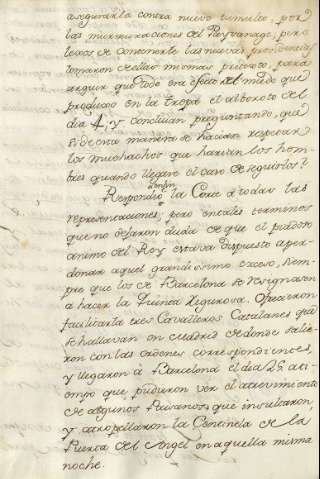 asegurarla contra nuevo tumulto, por
las murmuraciones del Paysanage; pero
lexos de contenerle las nuevas providencias
tomaron de ellas mismas pretexto, para
arguir que todo era efecto del miedo que
produxo en la tropa el alboroto del
dia 4, y concluian preguntando, que
si de esta manera se hacian respetar
los muchachos que harian los hom-
bres quando llegare el caso de seguirlos?
Respondió la Corte a todas las
representaciones; pero en tales terminos
que no dejaron duda de que el piadoso
animo del Rey estava dispuesto a per-
donar aquel grandissimo exceso, siem-
pre que los de Barcelona se resignasen
a hacer la Quinta segunda. Ofrecieron
facilitarla tres Cavalleros Catalanes que
se hallavan en Madrid de donde salie-
ron con las ordenes correspondientes,
y llegaron á Barcelona el dia 25 a ti-
empo que pudieron ver el atrevimiento
de algunos Paisanos, que insultaron,
y atropellaron la Centinela de la
Puerta del Angel en aquella misma
noche.